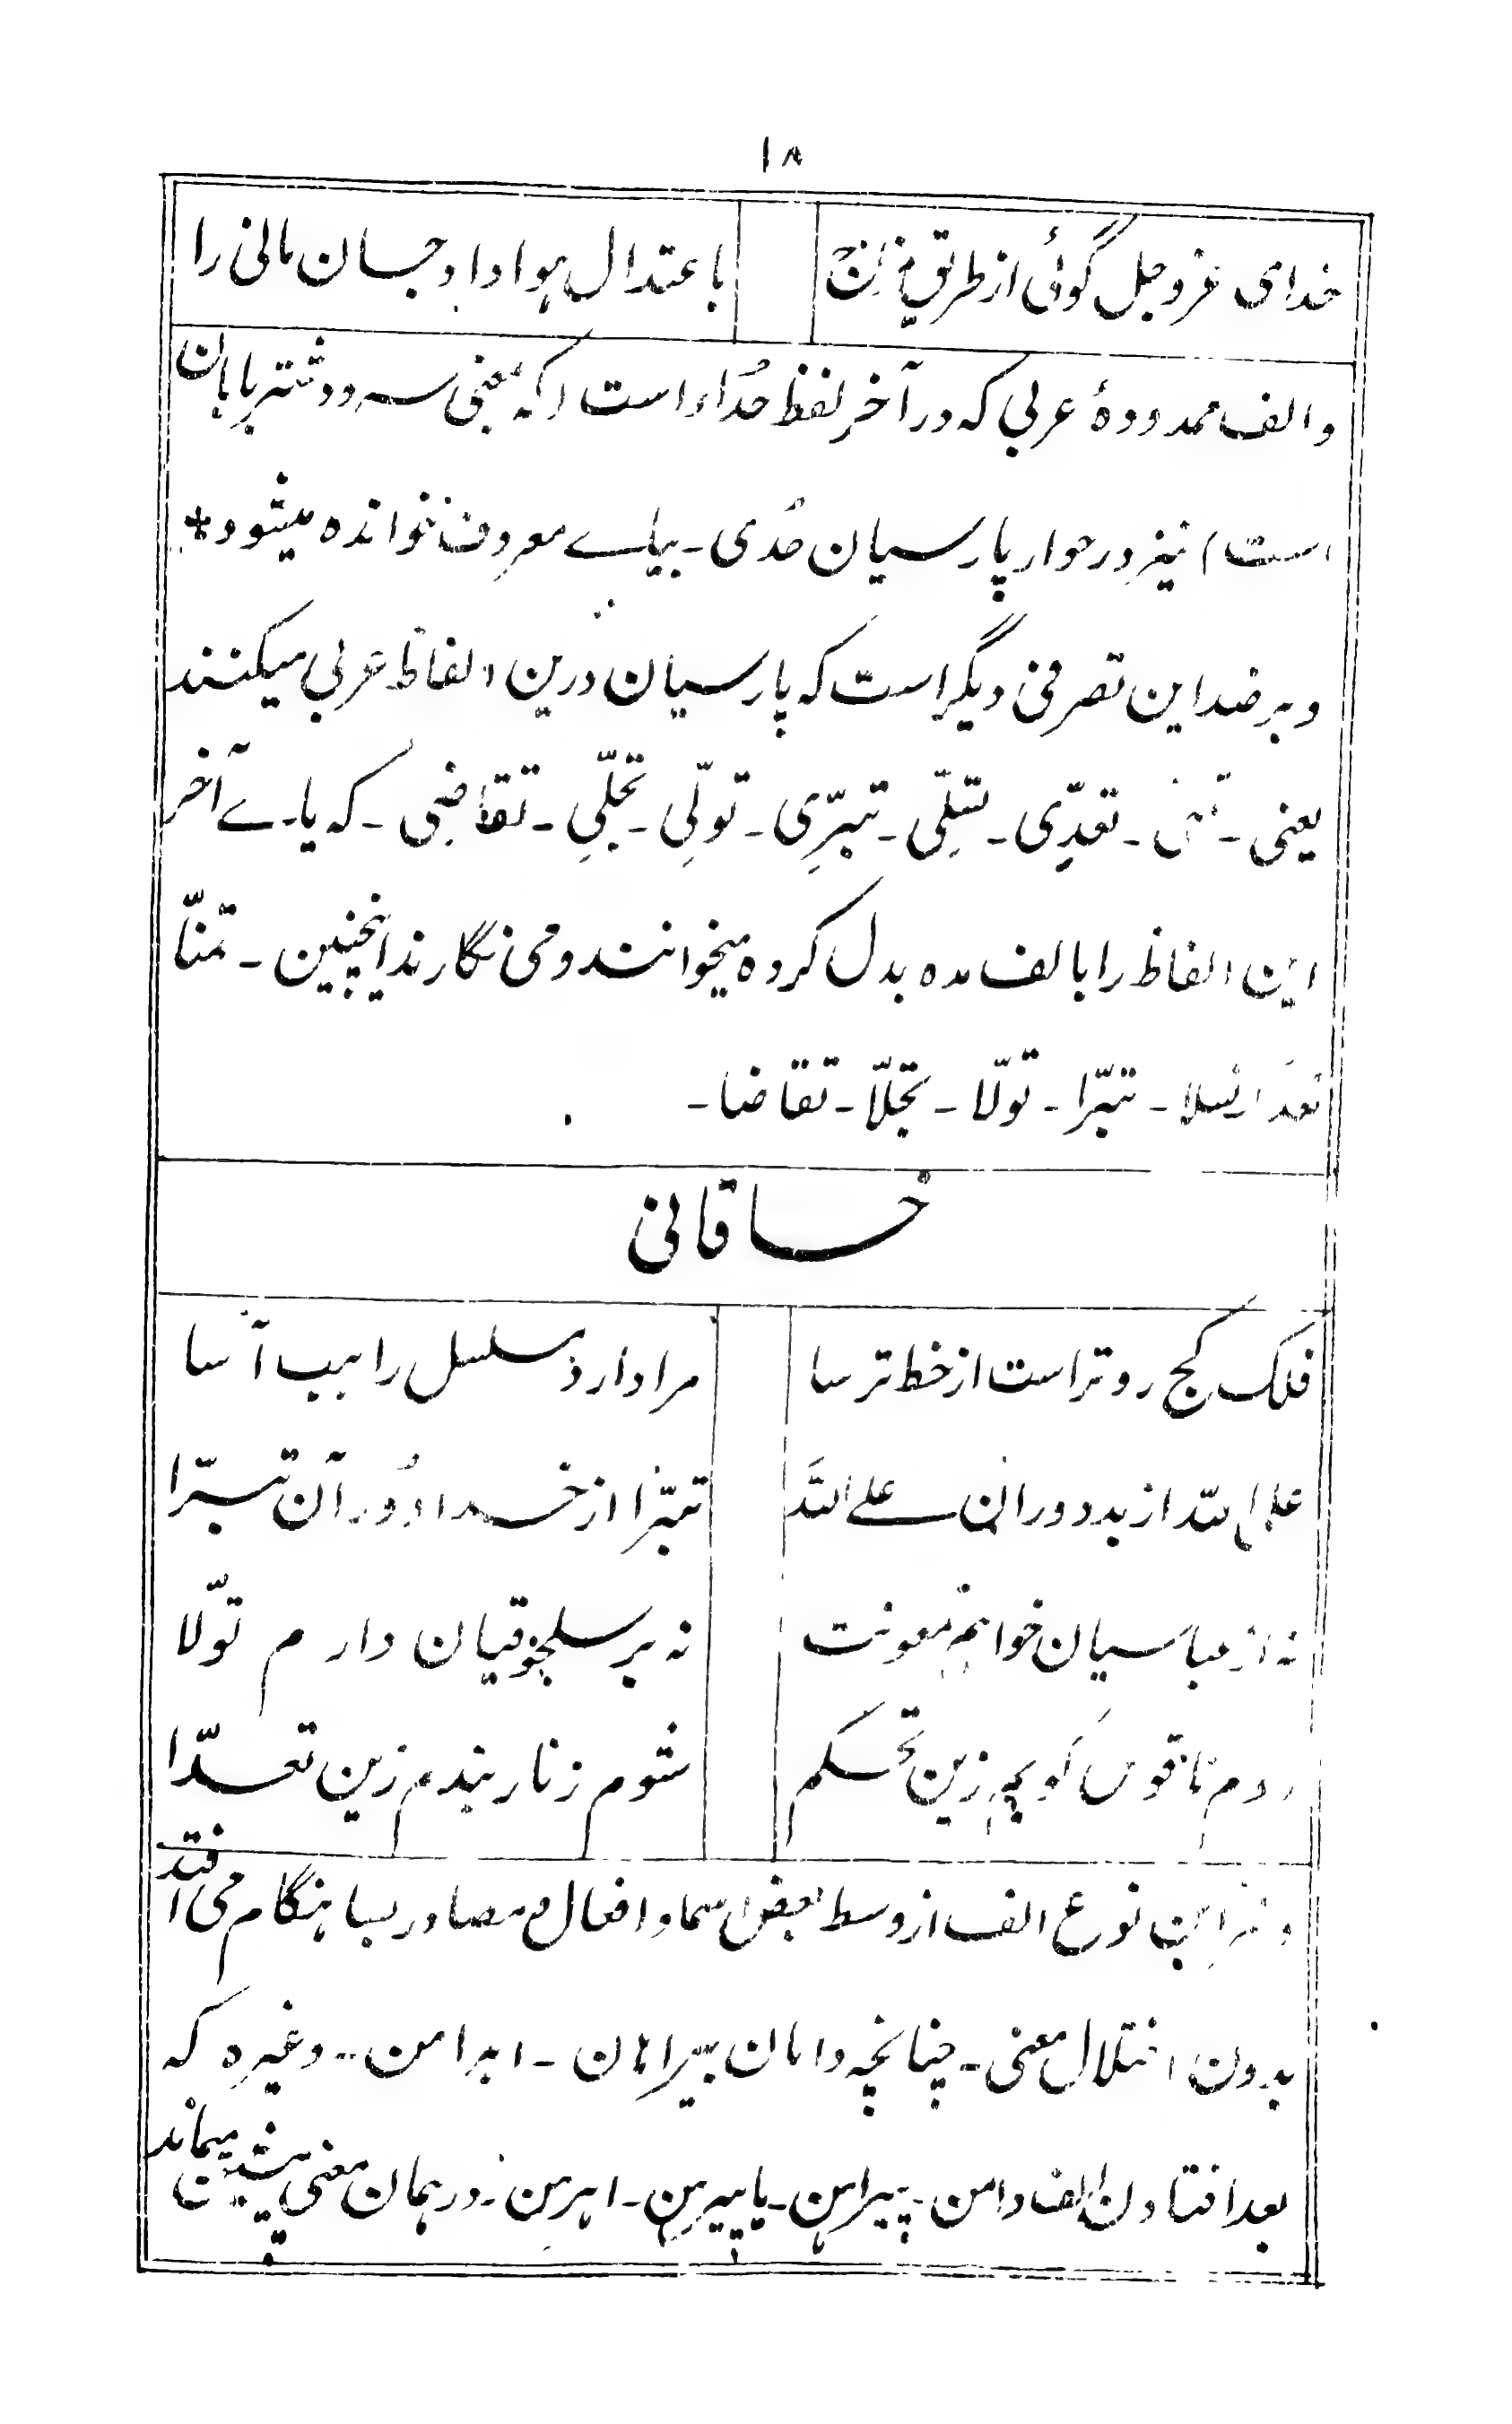 ۱۸
خدای عزوجل گوئی از طریق مزاج باعتدال هوا داد و جسان مانی را
والف ممدودهٔ عربی که در آخرِ لفظ حُداء است (که بمعنی سرود شتربانان
است) نیز در حوار پارسیان حُدی - بیاے معروف خوانده میشود *
و بر ضد این تصرفی دیگر است که پارسیان درین الفاظ عربی میکنند
یعنی - تمنی - تعدِّی - تسلِّی - تبرِّی - تولِّی - تجلِّی - تقاضِی - که یاے آخر
این الفاظ را بالف مده بدل کرده میخوانند و می نگارند اینچنین - تمنّا
تعدا - تسلا - تبرّا - تولّا - تجلّا - تقاضا -
خاقانی
فلک کج روتر است از خط ترسا مرا دارد مسلسل راهب آسا
علی الله از بد دوران علی الله تبرّا از خدا دوران تبرّا
نه از عباسیان خواهم معونت نه بر سلجوقیان دارم تولّا
روم ناقوس بوسم زین تحکم شوم زنار بندم زین تعدّا
و نیز این نوع الف از وسط بعض اسما و افعال و مصادر بسا هنگام می افتد
بدون اختلال معنی - چنانچه دامان پیراهان - اهرامن - وغیره که
بعد افتادن الف دامن - پیراهن - یا پیرهن - اهرمن - در همان معنی پیشین میماند